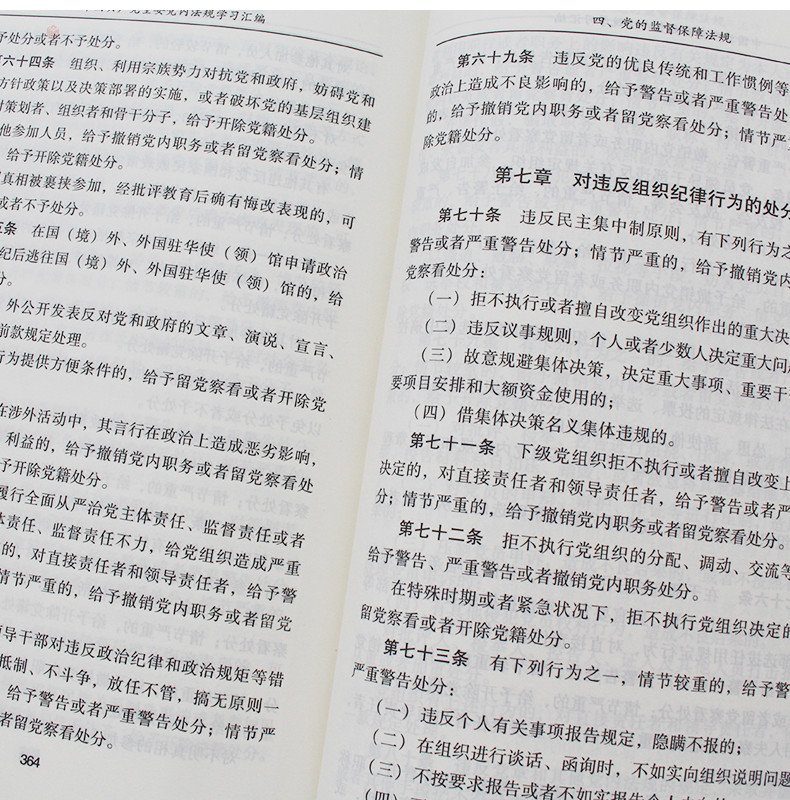 党内法规学习汇编
予处分或者不予处分。
六十四条 组织、利用宗族势力对抗党和政府，妨碍党和
方针政策以及决策部署的实施，或者破坏党的基层组织建
对策划者、组织者和骨干分子，给予开除党籍处分。
他参加人员，给予撤销党内职务或者留党察看处分；情
，给予开除党籍处分。
真相被裹挟参加，经批评教育后确有悔改表现的，可
或者不予处分。
五条 在国（境）外、外国驻华使（领）馆申请政治
纪后逃往国（境）外、外国驻华使（领）馆的，给
分。
外公开发表反对党和政府的文章、演说、宣言、
前款规定处理。
行为提供方便条件的，给予留党察看或者开除党
在涉外活动中，其言行在政治上造成恶劣影响，
利益的，给予撤销党内职务或者留党察看处
予开除党籍处分。
履行全面从严治党主体责任、监督责任或者
体责任、监督责任不力，给党组织造成严重
的，对直接责任者和领导责任者，给予警
情节严重的，给予撤销党内职务或者留党
领导干部对违反政治纪律和政治规矩等错
抵制、不斗争，放任不管，搞无原则一
，给予警告或者严重警告处分；情节严
或者留党察看处分。
364
四、党的监督保障法规
第六十九条 违反党的优良传统和工作惯例等
政治上造成不良影响的，给予警告或者严重警告处
的，给予撤销党内职务或者留党察看处分；情节严
除党籍处分。
第七章 对违反组织纪律行为的处分
第七十条 违反民主集中制原则，有下列行为之
警告或者严重警告处分；情节严重的，给予撤销党内
党察看处分：
（一）拒不执行或者擅自改变党组织作出的重大决
（二）违反议事规则，个人或者少数人决定重大问
（三）故意规避集体决策，决定重大事项、重要干
要项目安排和大额资金使用的；
（四）借集体决策名义集体违规的。
第七十一条 下级党组织拒不执行或者擅自改变上
决定的，对直接责任者和领导责任者，给予警告或者严
分；情节严重的，给予撤销党内职务或者留党察看处分。
第七十二条 拒不执行党组织的分配、调动、交流等
给予警告、严重警告或者撤销党内职务处分。
在特殊时期或者紧急状况下，拒不执行党组织决定的
留党察看或者开除党籍处分。
第七十三条 有下列行为之一，情节较重的，给予警
严重警告处分：
（一）违反个人有关事项报告规定，隐瞒不报的；
（二）在组织进行谈话、函询时，不如实向组织说明问题
（三）不按要求报告或者不如实报告个人去向的
（四）